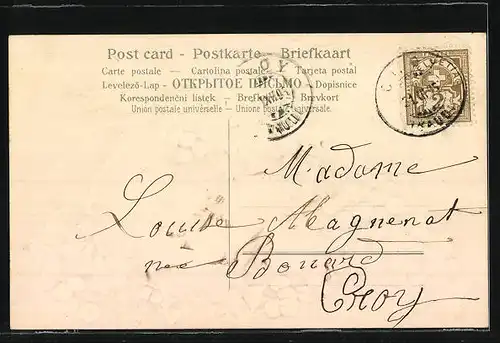 Post card - Postkarte - Briefkaart
Carte postale — Cartolina postale — Tarjeta postal
Levelező-Lap - ОТКРЫТОЕ ПИСЬМО - Dopisnice
Korespondenční lístek — Brefkort — Brevkort
Union postale universelle — Unione postale universale
HELVETIA
2
OY
Madame
Louise Magnenat
née Bonard
Croy